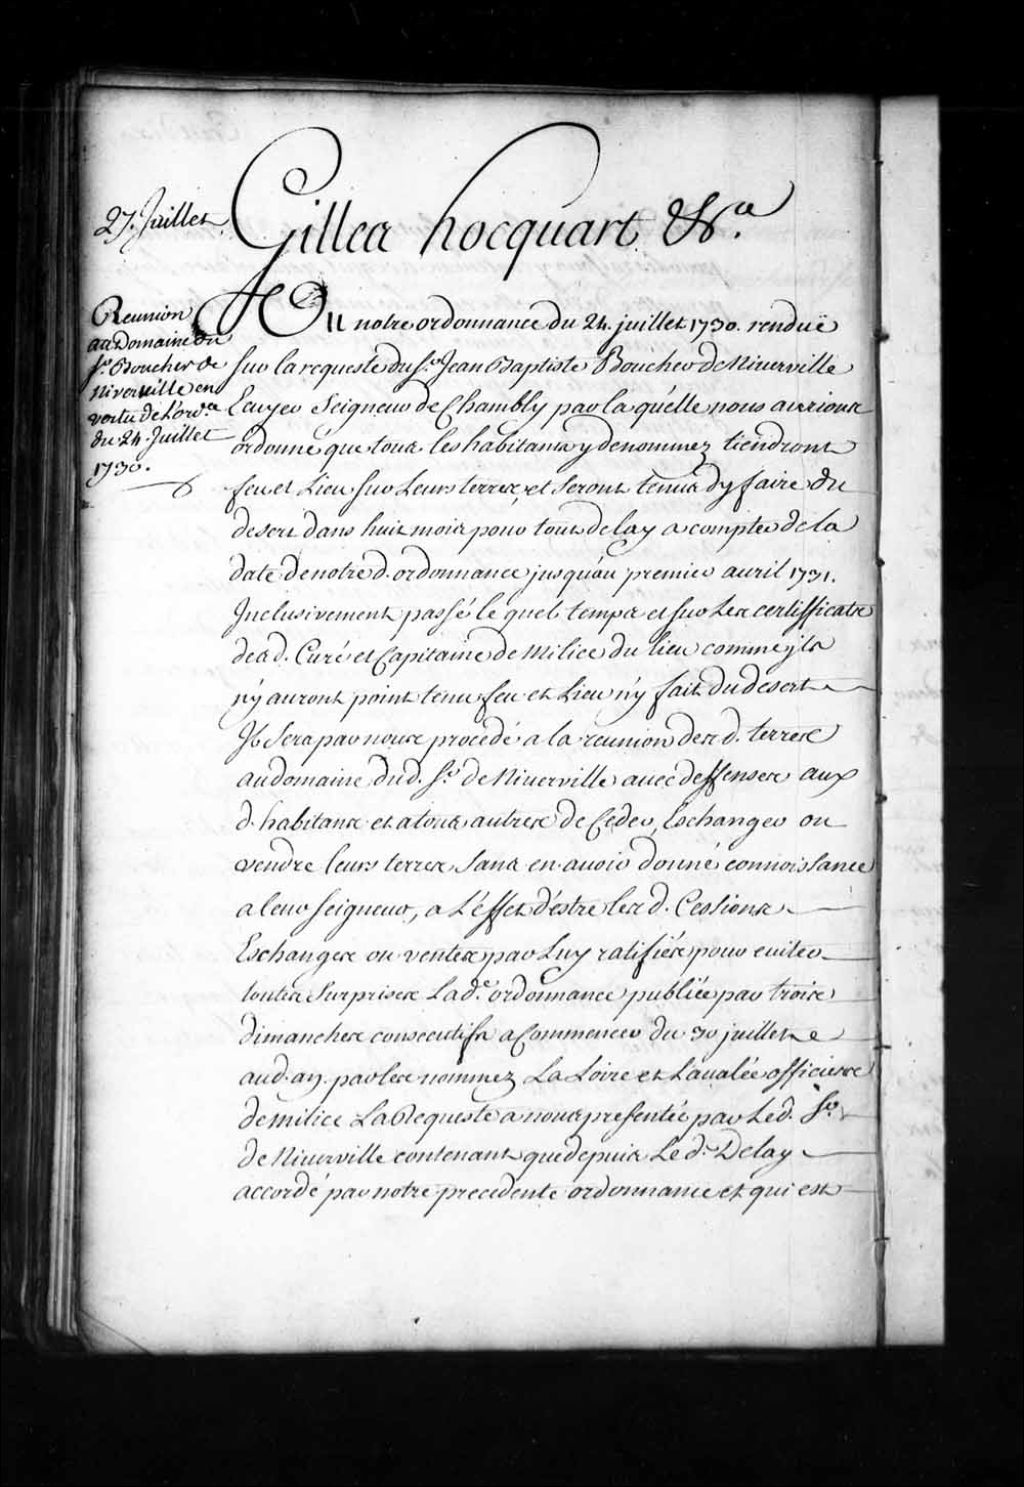 27. Juillet
Gilles hocquart &ca.
Reunion
au Domaine du
Sr. Boucher de
Niverville en
vertu de l'ordce
du 24. Juillet
1730.
Vu notre ordonnance du 24. juillet 1730. renduë
sur la requeste du Sr. Jean Baptiste Boucher de Niuerville
Ecuyer Seigneur de Chambly par laquelle nous aurions
ordonné que tous les habitans y denommez tiendront
feu et Lieu sur Leurs terres, et seront tenus d'y faire du
desert dans huit mois pour tout delay a compter de la
date de notre d. ordonnance jusqu'au premier auril 1731.
Inclusivement passé le quel temps et sur Les certifficats
des d. Curé et Capitaine de milice du lieu comme jls
n'y auront point tenu feu et Lieu n'y fait du desert
Il Sera par nous procedé a la reunion des d. terres
au domaine dud. Sr. de Niuerville auec deffenses aux
d. habitans et a tous autres de Ceder, Eschanger ou
vendre leurs terres sans en auoir donné connoissance
a leur seigneur, a L'effet d'estre les d. Cessions
Eschanges ou ventes par Luy ratifiées pour euiter
toutes surprises Lade. ordonnance publiée par trois
dimanches consecutifs a Commencer du 30 juillet
aud. an. par les nommez La Loire et Laualée officiers
de milice La Requeste a nous presentée par Led. Sr.
de Niuerville contenant que depuis Le d. Delay
accordé par notre precedente ordonnance et qui est